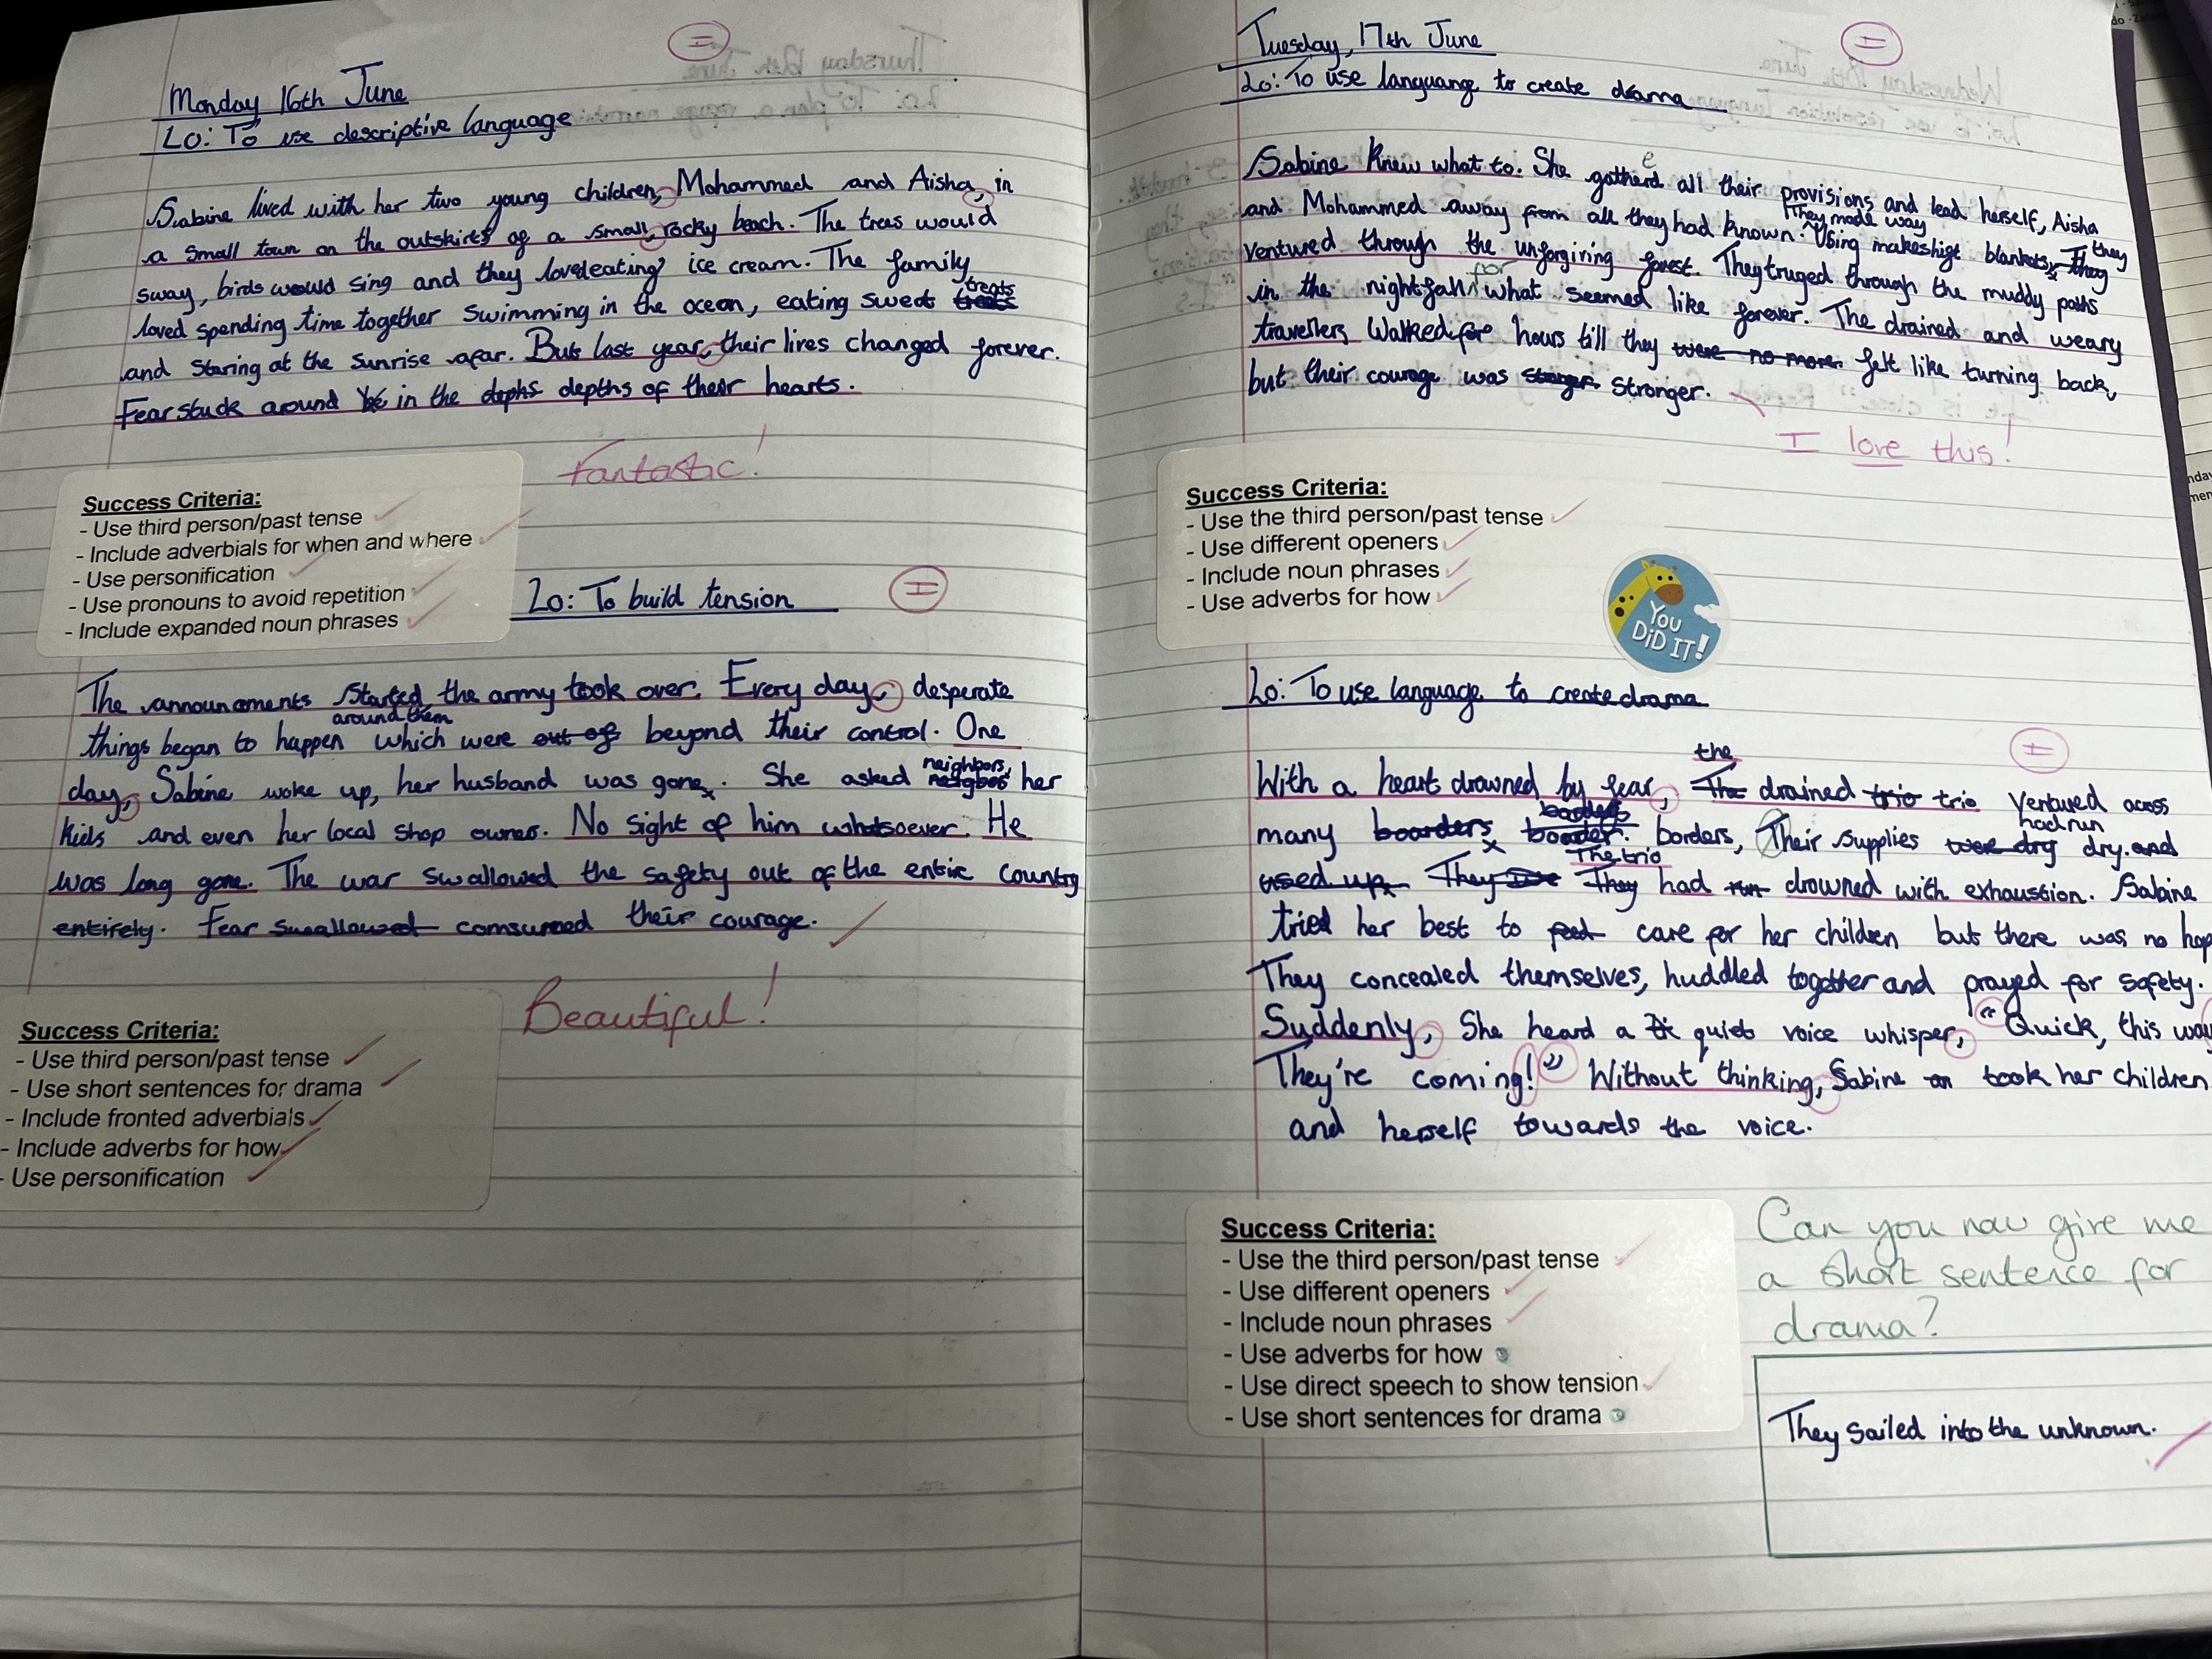 Monday 16th June
LO: To use descriptive language
Sabine lived with her two young children, Mohammed and Aisha, in
a small town on the outskirts of a small, rocky beach. The trees would
sway, birds would sing and they loved eating ice cream. The family
loved spending time together swimming in the ocean, eating sweet treats treats
and staring at the sunrise afar. But last year, their lives changed forever.
Fear stuck around in the dephs depths of their hearts.
Fantastic!
Success Criteria:
- Use third person/past tense
- Include adverbials for when and where
- Use personification
- Use pronouns to avoid repetition
- Include expanded noun phrases
I
LO: To build tension
I
The announcements started, the army took over. Every day, desperate
around them
things began to happen which were out of beyond their control. One
neighbors,
day, Sabine woke up, her husband was gone. She asked her
kids and even her local shop owner. No sight of him whatsoever. He
was long gone. The war swallowed the safety out of the entire country
entirely. Fear swallowed comsumed their courage.
Beautiful!
Success Criteria:
- Use third person/past tense
- Use short sentences for drama
- Include fronted adverbials
- Include adverbs for how
- Use personification
Tuesday, 17th June
I
LO: To use languange to create drama
Sabine knew what to. She gatherd all their provisions and lead herself, Aisha
e
and Mohammed away from all they had known. Using makeshigt blankets, they
They made way
ventured through the unforgiving forest. They truged through the muddy paths
in the nightfall for what seemed like forever. The drained and weary
travellers walked for hours till they were no more felt like turning back,
but their courage was stronger.
I love this!
Success Criteria:
- Use the third person/past tense
- Use different openers
- Include noun phrases
- Use adverbs for how
YOU DiD IT!
LO: To use language to create drama
I
the
With a heart drowned by fear, The drained trio trio ventured across
many boarders boarder. borders, Their supplies were dry dry. and
had run
The trio
used up. They They had run drowned with exhaustion. Sabine
tried her best to care for her children but there was no hop
They concealed themselves, huddled together and prayed for safety.
Suddenly, She heard a quiet voice whisper, "Quick, this way
They're coming!" Without thinking, Sabine took her children
and herself towards the voice.
Success Criteria:
- Use the third person/past tense
- Use different openers
- Include noun phrases
- Use adverbs for how
- Use direct speech to show tension
- Use short sentences for drama
Can you now give me
a short sentence for
drama?
They sailed into the unknown.